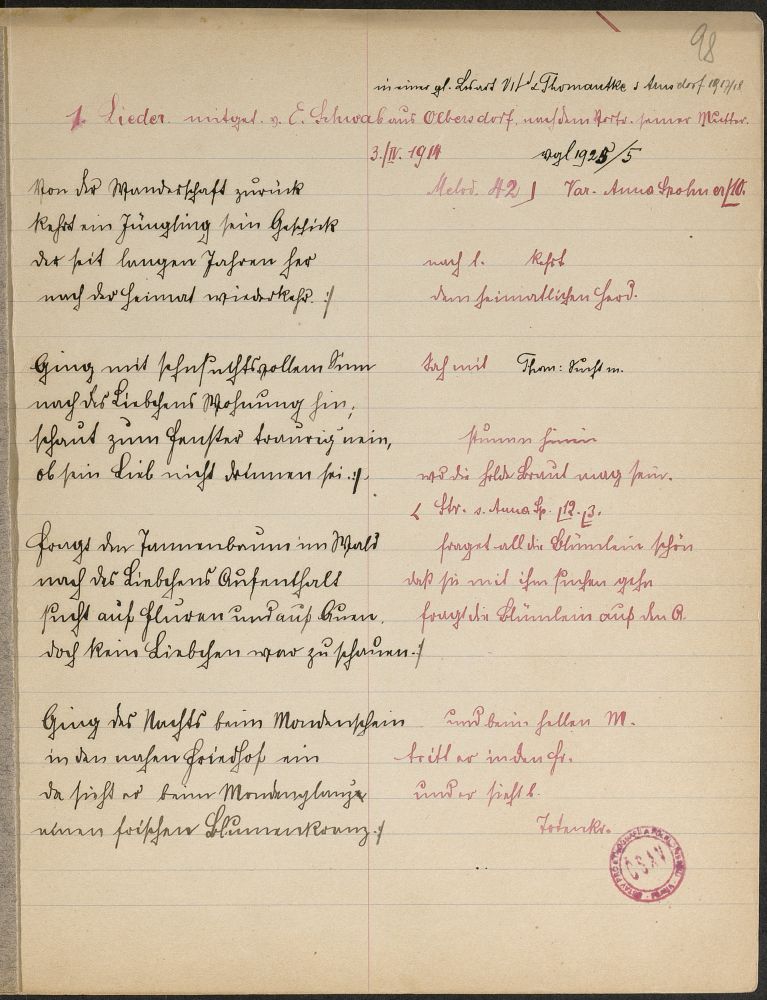 98
in einer gl. Lesart VII d Thomantke s Arnsdorf 1917/18
1. Lieder. mitget. v. E. Schwab aus Olbersdorf, nach dem Vortr. seiner Mutter.
3./IV. 1914 vgl 1925/5
Von der Wanderschaft zurück Melod. 42 Var. Anna
kehrt ein Jüngling sein Geschick
der seit langen Jahren her nach l. kehrt
nach der Heimat wiederkehr. :/ dem heimatlichen Herd.
Ging mit sehnsuchtsvollem Sinn Sah mit Thom: Sucht m.
nach des Liebchens Wohnung hin,
schaut zum Fenster traurig nein, stumm hinein
ob sein Lieb nicht drinnen sei. :/. wo die holde Braut mag sein.
Str. s. Anna Sp. 12. 3.
Fragt den Tannenbaum im Wald fraget all die Blümlein schön
nach des Liebchens Aufenthalt daß sie mit ihm suchen gehn
sucht auf Fluren und auf Auen, fragt die Blümlein auf den A.
doch kein Liebchen war zu schauen. :/
Ging des Nachts beim Mondenschein und beim hellen M.
in den nahen Friedhof ein tritt er in den Fr.
da sieht er beim Mondenglanze und er sieht b.
einen frischen Blumenkranz. :/ Totenkr.
ČSAV